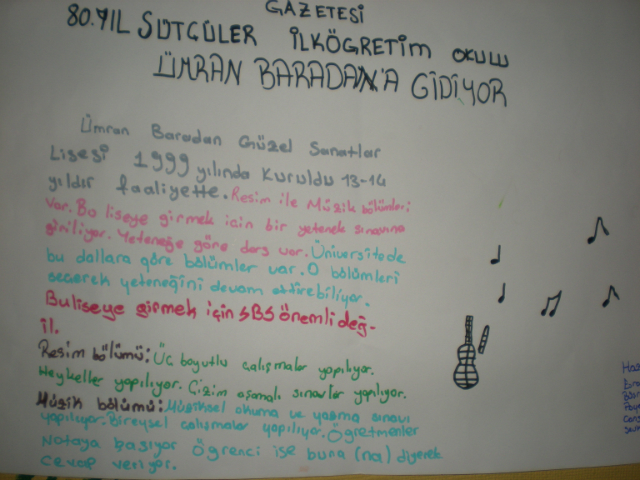 GAZETESİ
80.YIL SÜTÇÜLER İLKÖGRETİM OKULU
ÜMRAN BARADAN'A GİDİYOR
Ümran Baradan Güzel Sanatlar
Lisesi 1999 yılında kuruldu 13-14
yıldır faaliyette. Resim ile Müzik bölümleri
var. Bu liseye girmek için bir yetenek sınavına
giriliyor. Yeteneğe göre ders var. Üniversitede
bu dallara göre bölümler var. O bölümleri
seçerek yeteneğini devam ettirebiliyor.
Bu liseye girmek için SBS önemli değ-
il.
Resim bölümü: Üç boyutlu çalışmalar yapılıyor.
Heykeller yapılıyor. Çizim aşamalı sınavlar yapılıyor.
Müzik bölümü: Müziksel okuma ve yazma sınavı
yapılıyor. Bireysel çalışmalar yapılıyor. Öğretmenler
notaya basıyor öğrenci ise buna (na) diyerek
cevap veriyor.